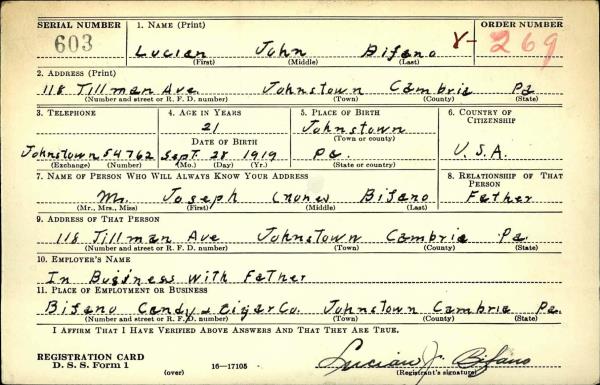 SERIAL NUMBER 1. NAME (Print) ORDER NUMBER
603 Lucian John Bifano V-269
(First) (Middle) (Last)
2. ADDRESS (Print)
118 Tillman Ave. Johnstown Cambria Pa
(Number and street or R. F. D. number) (Town) (County) (State)
3. TELEPHONE 4. AGE IN YEARS 5. PLACE OF BIRTH 6. COUNTRY OF CITIZENSHIP
21 Johnstown
DATE OF BIRTH (Town or county)
Johnstown 54762 Sept. 28 1919 Pa. U.S.A.
(Exchange) (Number) (Mo.) (Day) (Yr.) (State or country)
7. NAME OF PERSON WHO WILL ALWAYS KNOW YOUR ADDRESS 8. RELATIONSHIP OF THAT PERSON
Mr. Joseph (none) Bifano Father
(Mr., Mrs., Miss) (First) (Middle) (Last)
9. ADDRESS OF THAT PERSON
118 Tillman Ave Johnstown Cambria Pa
(Number and street or R. F. D. number) (Town) (County) (State)
10. EMPLOYER'S NAME
In Business with Father
11. PLACE OF EMPLOYMENT OR BUSINESS
Bifano Candy & Cigar Co. Johnstown Cambria Pa.
(Number and street or R. F. D. number) (Town) (County) (State)
I AFFIRM THAT I HAVE VERIFIED ABOVE ANSWERS AND THAT THEY ARE TRUE.
REGISTRATION CARD
D. S. S. Form 1 (over) 16—17105 Lucian J. Bifano
(Registrant's signature)